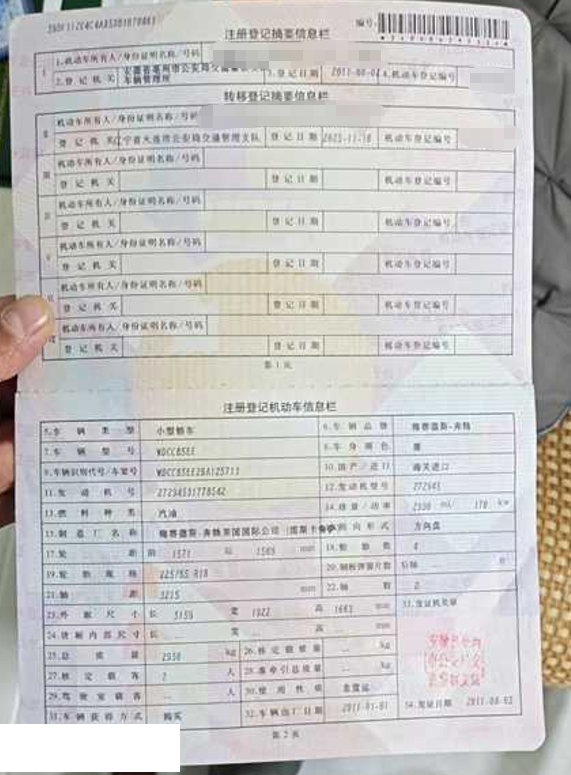 注册登记摘要信息栏
编号:
1.机动车所有人/身份证明名称/号码
2.登记机关 车辆管理所 3.登记日期 2011-08-02 4.机动车登记编号
转移登记摘要信息栏
机动车所有人/身份证明名称/号码
登记机关 辽宁省大连市公安局交通警察支队 登记日期 机动车登记编号
机动车所有人/身份证明名称/号码
登记机关 登记日期 机动车登记编号
机动车所有人/身份证明名称/号码
登记机关 登记日期 机动车登记编号
机动车所有人/身份证明名称/号码
登记机关 登记日期 机动车登记编号
机动车所有人/身份证明名称/号码
登记机关 登记日期 机动车登记编号
机动车所有人/身份证明名称/号码
登记机关 登记日期 机动车登记编号
第1页
注册登记机动车信息栏
5.车辆类型 小型轿车 6.车辆品牌 梅赛德斯-奔驰
7.车辆型号 WDCCB5EE 8.车身颜色 黑
9.车辆识别代号/车架号 10.国产/进口 海关进口
11.发动机号 27294531778542 12.发动机型号 272945
13.燃料种类 汽油 14.排量/功率 ml/ kw
15.制造厂名称 16.转向形式 方向盘
17.轮距 前 1571 后 mm 18.轮胎数 4
19.轮胎规格 20.钢板弹簧片数 后轴 片
21.轴距 3215 mm 22.轴数 2
23.外廓尺寸 长 宽 1922 高 mm 33.发证机关章
24.货厢内部尺寸 长 -- 宽 -- 高 -- mm
25.总质量 kg 26.核定载质量 -- kg
27.核定载客 人 28.准牵引总质量 -- kg
29.驾驶室载客 -- 人 30.使用性质 非营运
31.车辆获得方式 购买 32.车辆出厂日期 2011-01-01 34.发证日期 2011-08-02
第2页